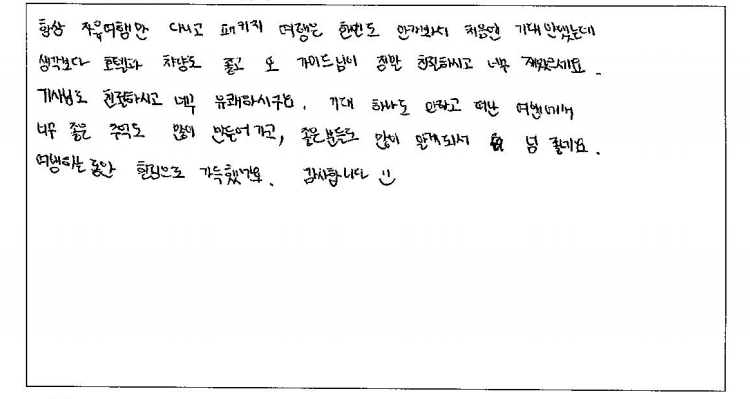 항상 자유여행만 다니고 패키지 여행은 한번도 안가봐서 처음엔 기대안했는데
생각보다 호텔과 차량도 좋고 오 가이드님이 정말 친절하시고 너무 재밌으세요.
기사님도 친절하시고 너무 유쾌하시구요. 기대 하나도 안하고 떠난 여행에서
너무 좋은 추억도 많이 만들어가고, 좋은분들도 많이 알게되서 넘 좋네요.
여행하는 동안 힐링으로 가득했어요. 감사합니다 :)